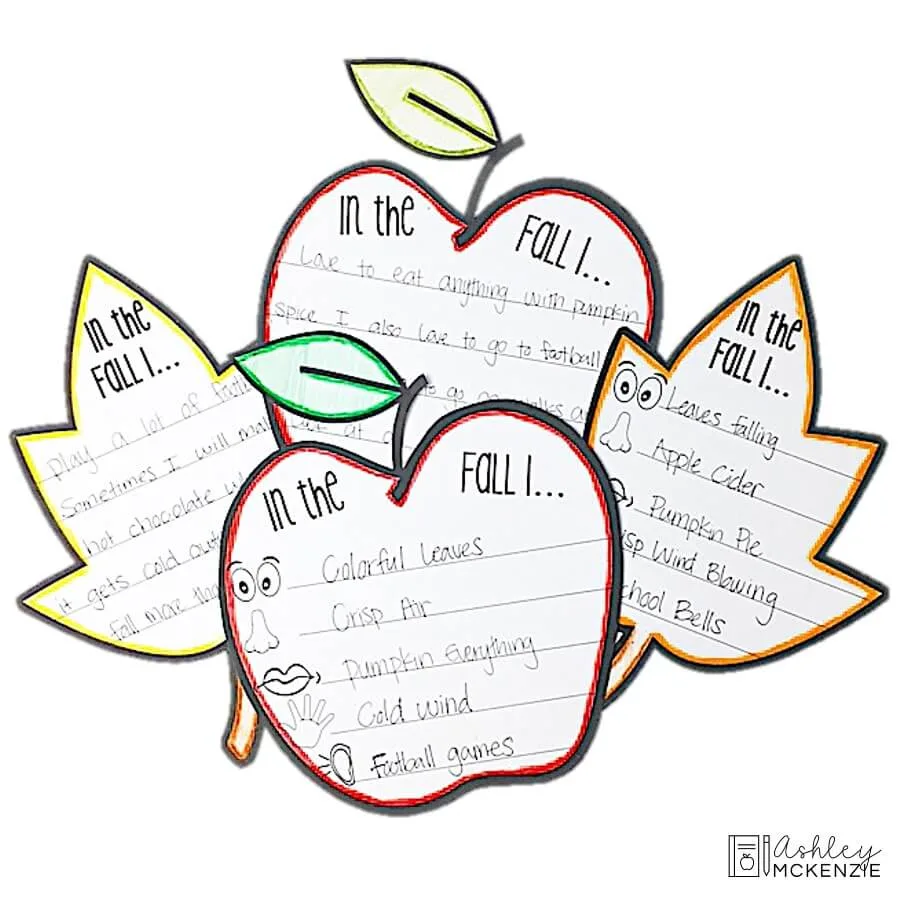 In the
FALL I...
Love to eat anything with pumpkin
spice I also love to go to football
to go on walks
In the
FALL I...
play a lot of
Sometimes I will
hot chocolate
it gets cold
fall more
In the
FALL I...
Leaves falling
Apple Cider
Pumpkin Pie
isp Wind Blowing
chool Bells
In the
FALL I...
Colorful Leaves
Crisp Air
Pumpkin Everything
Cold wind
Football games
Ashley
MCKENZIE